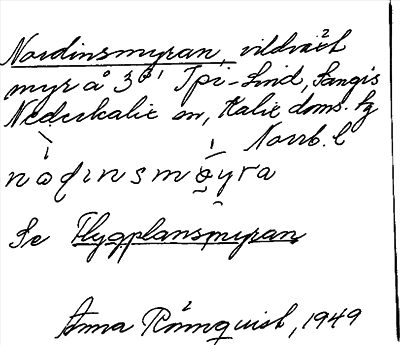 Nordinsmyran, vildniet
myr å 3G' Tpi-Lind, Sangis
Nederkalix sn, Kalix doms. tg
Norrb. l
nodınsmøyra
Se Flygplansmyran
Anna Rönnquist, 1949